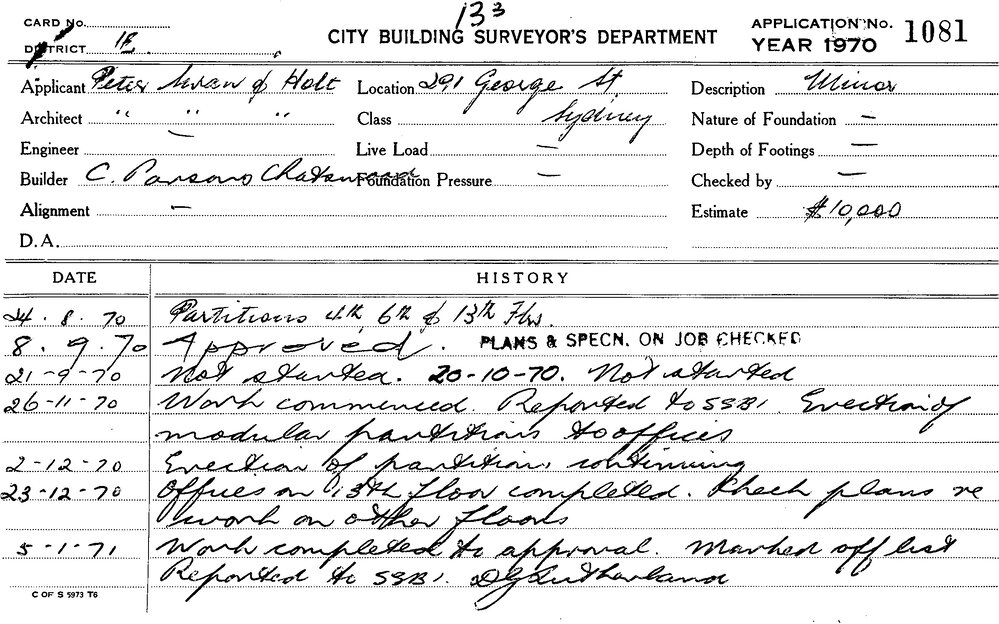 13³
CARD No.
CITY BUILDING SURVEYOR'S DEPARTMENT
APPLICATION No. 1081
DISTRICT 1E.
YEAR 1970
Applicant Peter Swan & Holt Location 291 George St. Description Minor
Architect " " " Class Sydney Nature of Foundation —
Engineer — Live Load — Depth of Footings —
Builder C. Parsons Chatswood Foundation Pressure — Checked by —
Alignment — Estimate $10,000
D.A.
DATE HISTORY
24.8.70 Partitions 4th, 6th & 13th Flrs.
8.9.70 Approved. PLANS & SPECN. ON JOB CHECKED
21-9-70 Not started. 20-10-70. Not started
26-11-70 Work commenced. Reported to SSB1. Erection of
modular partitions to offices
2-12-70 Erection of partitions continuing
23-12-70 Offices on 13th floor completed. Check plans re
work on other floors
5-1-71 Work completed to approval. Marked off list
Reported to SSB1. DG Sutherland
C OF S 5973 T6